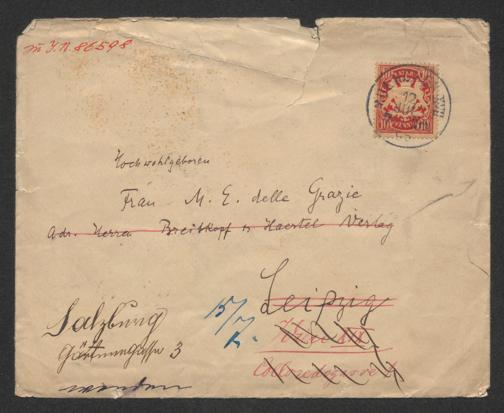 m I.N. 86598
10
12
Hochwohlgeboren
Frau M. E. delle Grazie
Adr. Herren Breitkopf u Haertel Verlag
Leipzig
15/7
Salzburg
Gärtnergasse 3
wenden